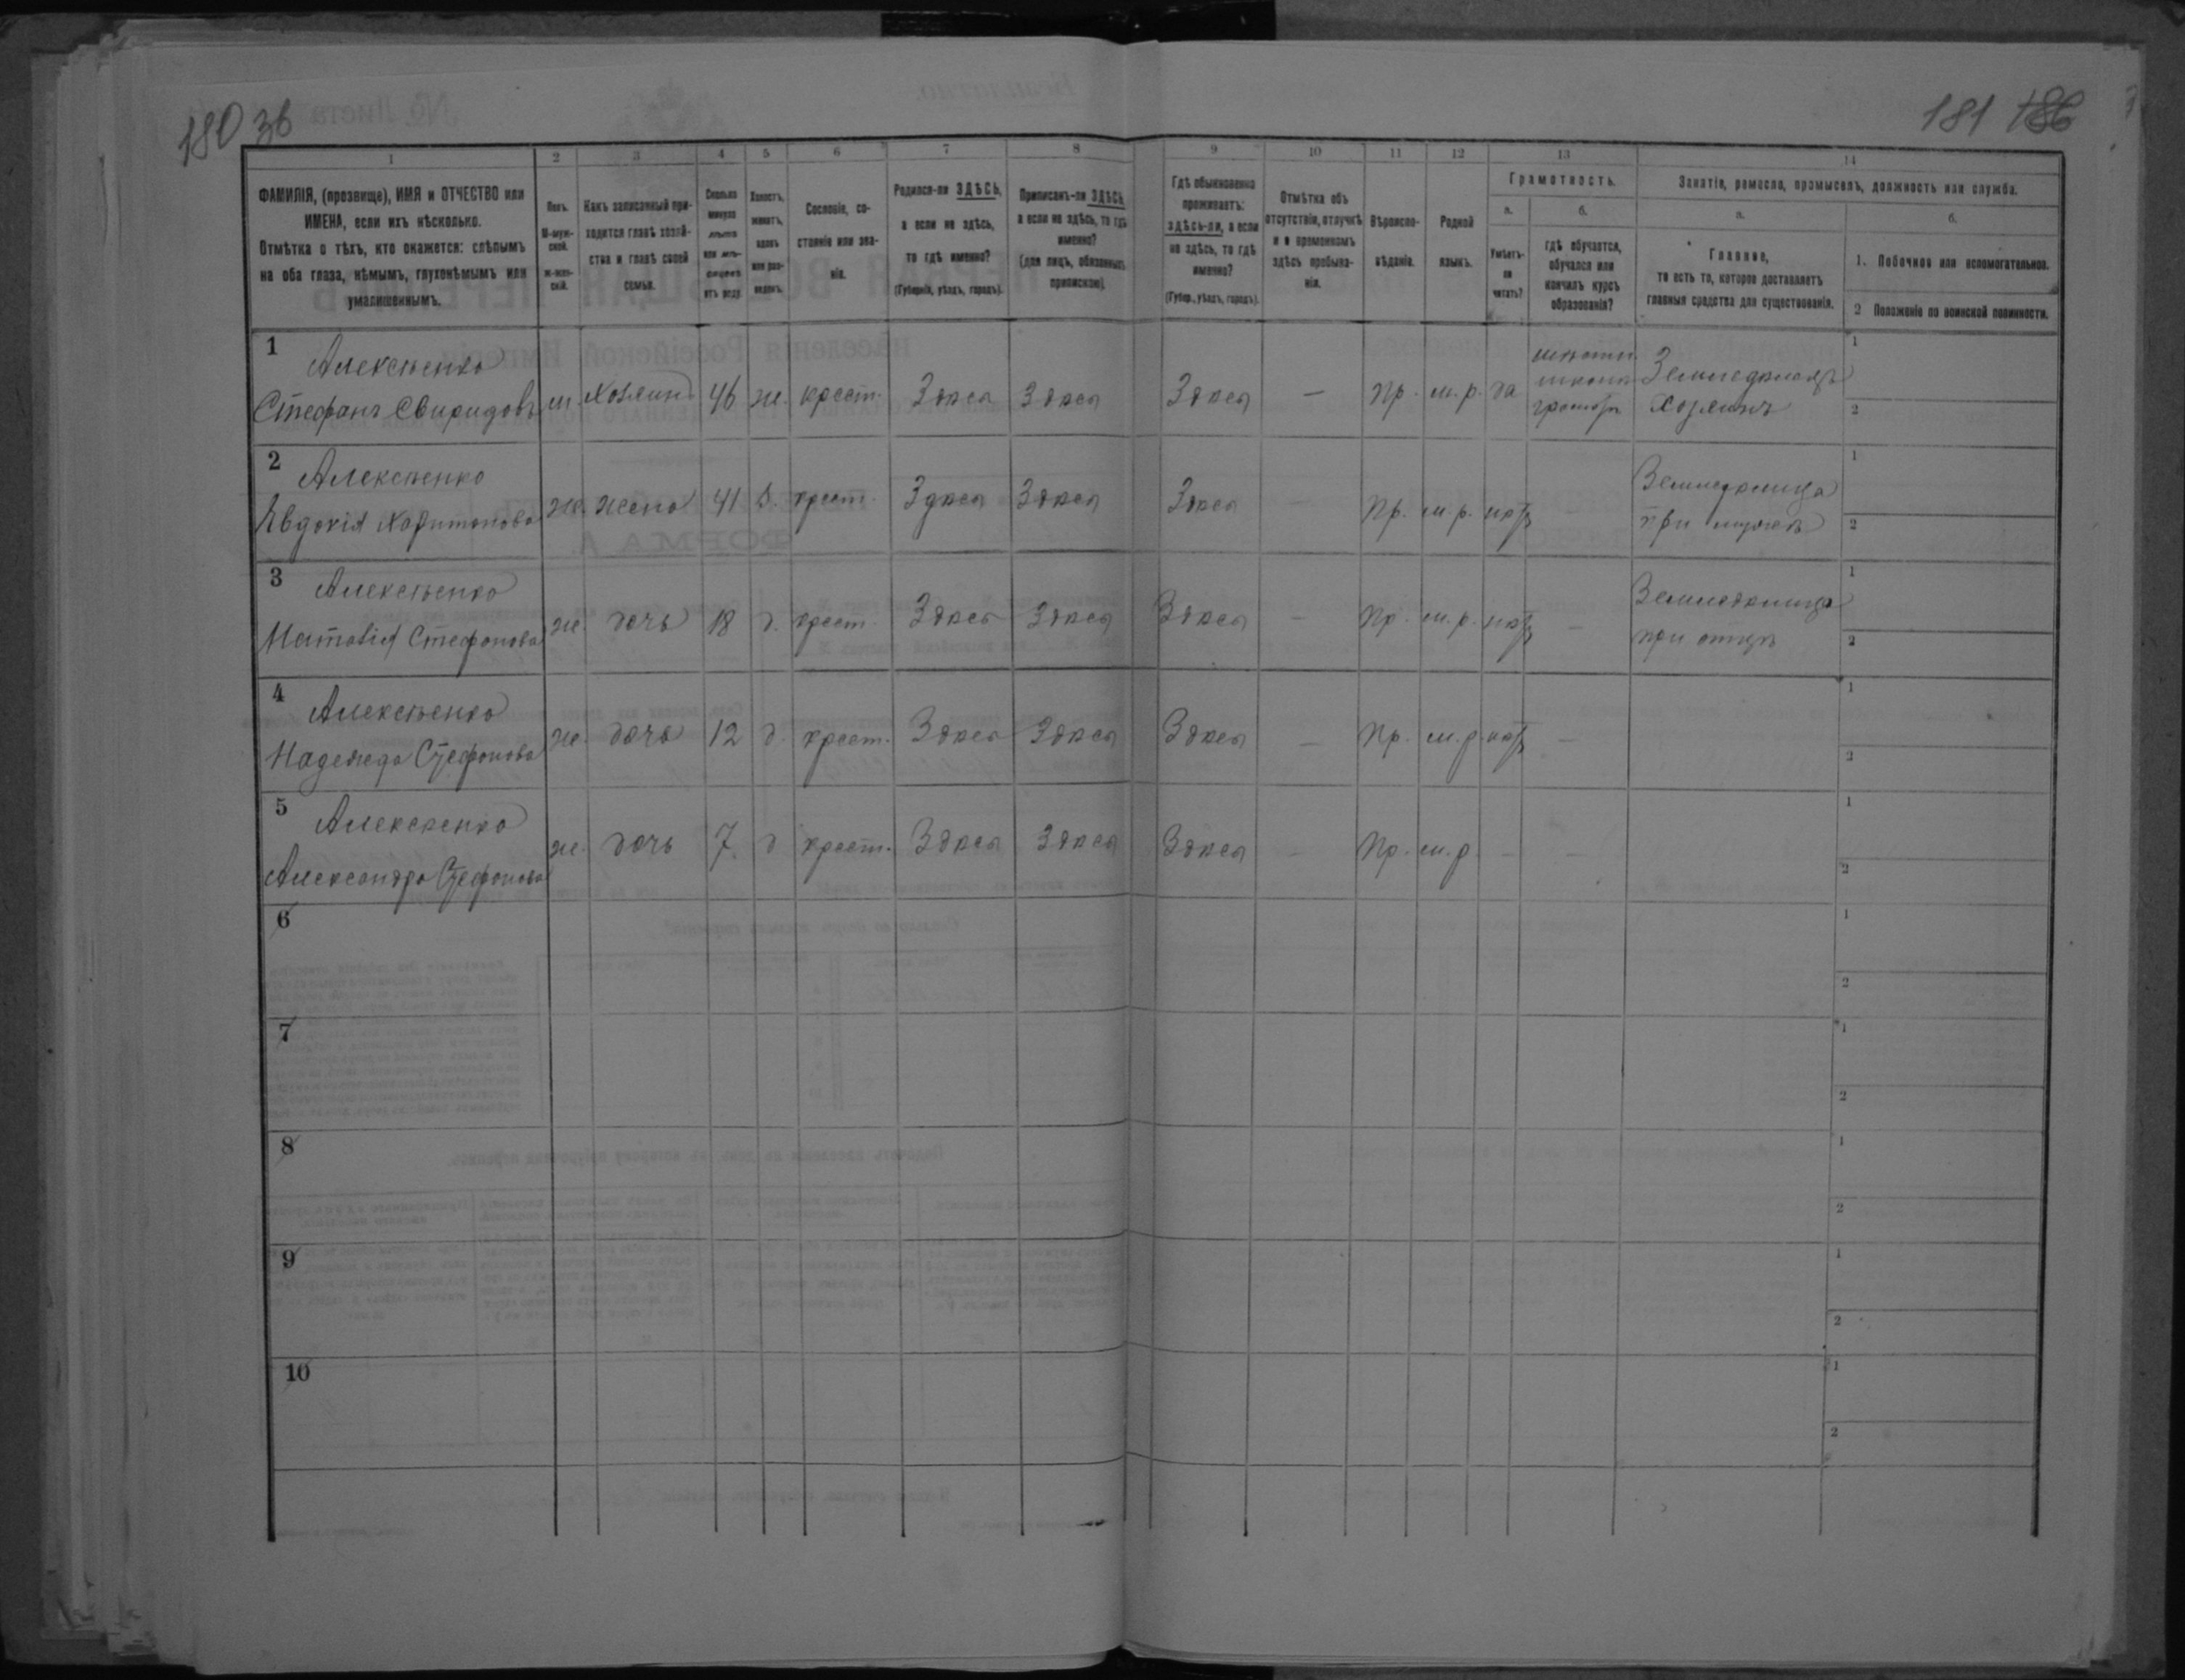 180 36
181 186
1 2 3 4 5 6 7 8 9 10 11 12 13 14
ФАМИЛІЯ, (прозвище), ИМЯ и ОТЧЕСТВО или ИМЕНА, если ихъ нѣсколько.
Отмѣтка о тѣхъ, кто окажется: слѣпымъ на оба глаза, нѣмымъ, глухонѣмымъ или умалишеннымъ.
Полъ.
М-муж-
ской.
ж-жен-
скій.
Какъ записанный при-
ходится главѣ хозяй-
ства и главѣ своей
семьи.
Сколько
минуло
лѣтъ
или мѣ-
сяцевъ
отъ роду
Холостъ,
женатъ,
вдовъ
или раз-
веденъ.
Сословіе, со-
стояніе или зва-
ніе.
Родился-ли ЗДѢСЬ,
а если не здѣсь,
то гдѣ именно?
(Губернія, уѣздъ, городъ).
Приписанъ-ли ЗДѢСЬ,
а если не здѣсь, то гдѣ
именно?
(для лицъ, обязанныхъ
припискою).
Гдѣ обыкновенно
проживаетъ:
здѣсь-ли, а если
не здѣсь, то гдѣ
именно?
(Губер., уѣздъ, городъ).
Отмѣтка объ
отсутствіи, отлучкѣ
и о временномъ
здѣсь пребыва-
ніи.
Вѣроиспо-
вѣданіе.
Родной
языкъ.
Грамотность.
а.
Умѣетъ-
ли
читать?
б.
гдѣ обучается,
обучался или
кончилъ курсъ
образованія?
Занятіе, ремесло, промыселъ, должность или служба.
а.
Главное,
то есть то, которое доставляетъ
главныя средства для существованія.
б.
1. Побочное или вспомогательное.
2 Положеніе по воинской повинности.
1 Алексѣенко
Стефанъ Свиридовъ м. Хозяинъ 46 ж. крест. Здѣсь Здѣсь Здѣсь — Пр. м. р. да Земледѣлецъ
хозяинъ
1
2
2 Алексѣенко
Евдокія Харитонова ж. жена 41 з. крест. Здѣсь Здѣсь Здѣсь — Пр. м. р. нѣтъ — Земледѣлица
при мужѣ
1
2
3 Алексѣенко
Стефанова ж. дочь 18 д. крест. Здѣсь Здѣсь Здѣсь — Пр. м. р. нѣтъ — Земледѣлица
при отцѣ
1
2
4 Алексѣенко
Надежда Стефанова ж. дочь 12 д. крест. Здѣсь Здѣсь Здѣсь — Пр. м. р. нѣтъ —
1
2
5 Алексѣенко
Александра Стефанова ж. дочь 7 д крест. Здѣсь Здѣсь Здѣсь — Пр. м. р. — —
1
2
6
1
2
7
1
2
8
1
2
9
1
2
10
1
2